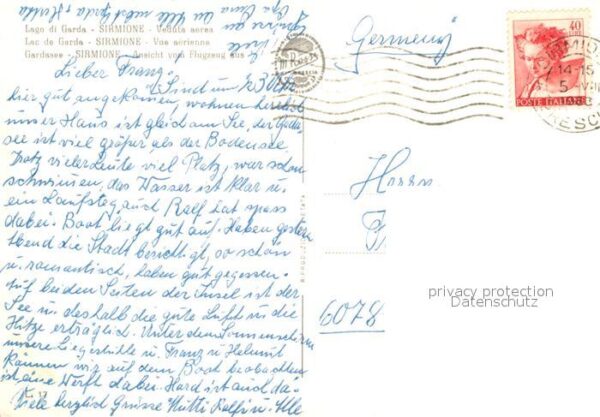 Lago di Garda - SIRMIONE - Veduta aerea
Lac de Garda - SIRMIONE - Vue aérienne
Gardasee - SIRMIONE - Ansicht vom Flugzeug aus
Lieber Franz,
Sind um ½3 Uhr
hier gut angekommen, wohnen herrlich
unser Haus ist gleich am See, der Garda
see ist viel größer als der Bodensee
Trotz vieler Leute viel Platz, war schon
schwimmen, das Wasser ist klar u.
ein Laufsteg, auch Ralf hat spass
dabei. Boot liegt gut auf. Haben gestern
Abend die Stadt besichtigt, so schön
u. romantisch, haben gut gegessen.
Auf beiden Seiten der Insel ist der
See u. deshalb die gute Luft u. die
Hitze erträglich. Unter dem Sonnenschirm
unsere Liegestühle u. Franz u. Helmut
können wir auf dem Boot beobachten
ist eine Werft dabei. Hard ist auch da
Viele herzlich Grüsse Mutti Ralf u. Alle
Germany
Herrn
F
6078
40
POSTE ITALIANE
14-15
privacy protection
Datenschutz